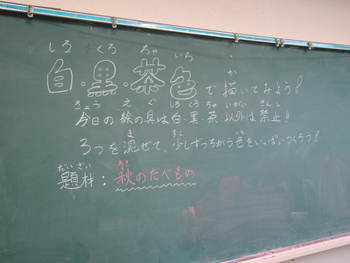 しろ くろ ちゃ いろ か
白・黒・茶色で描いてみよう！
きょう え ぐ しろ くろ ちゃ いがい きんし
今日の絵の具は白・黒・茶以外は禁止!!
ま すこ いろ
3つを混ぜて、少しずつちがう色をいっぱいつくろう！
だいざい あき
題材：秋のたべもの